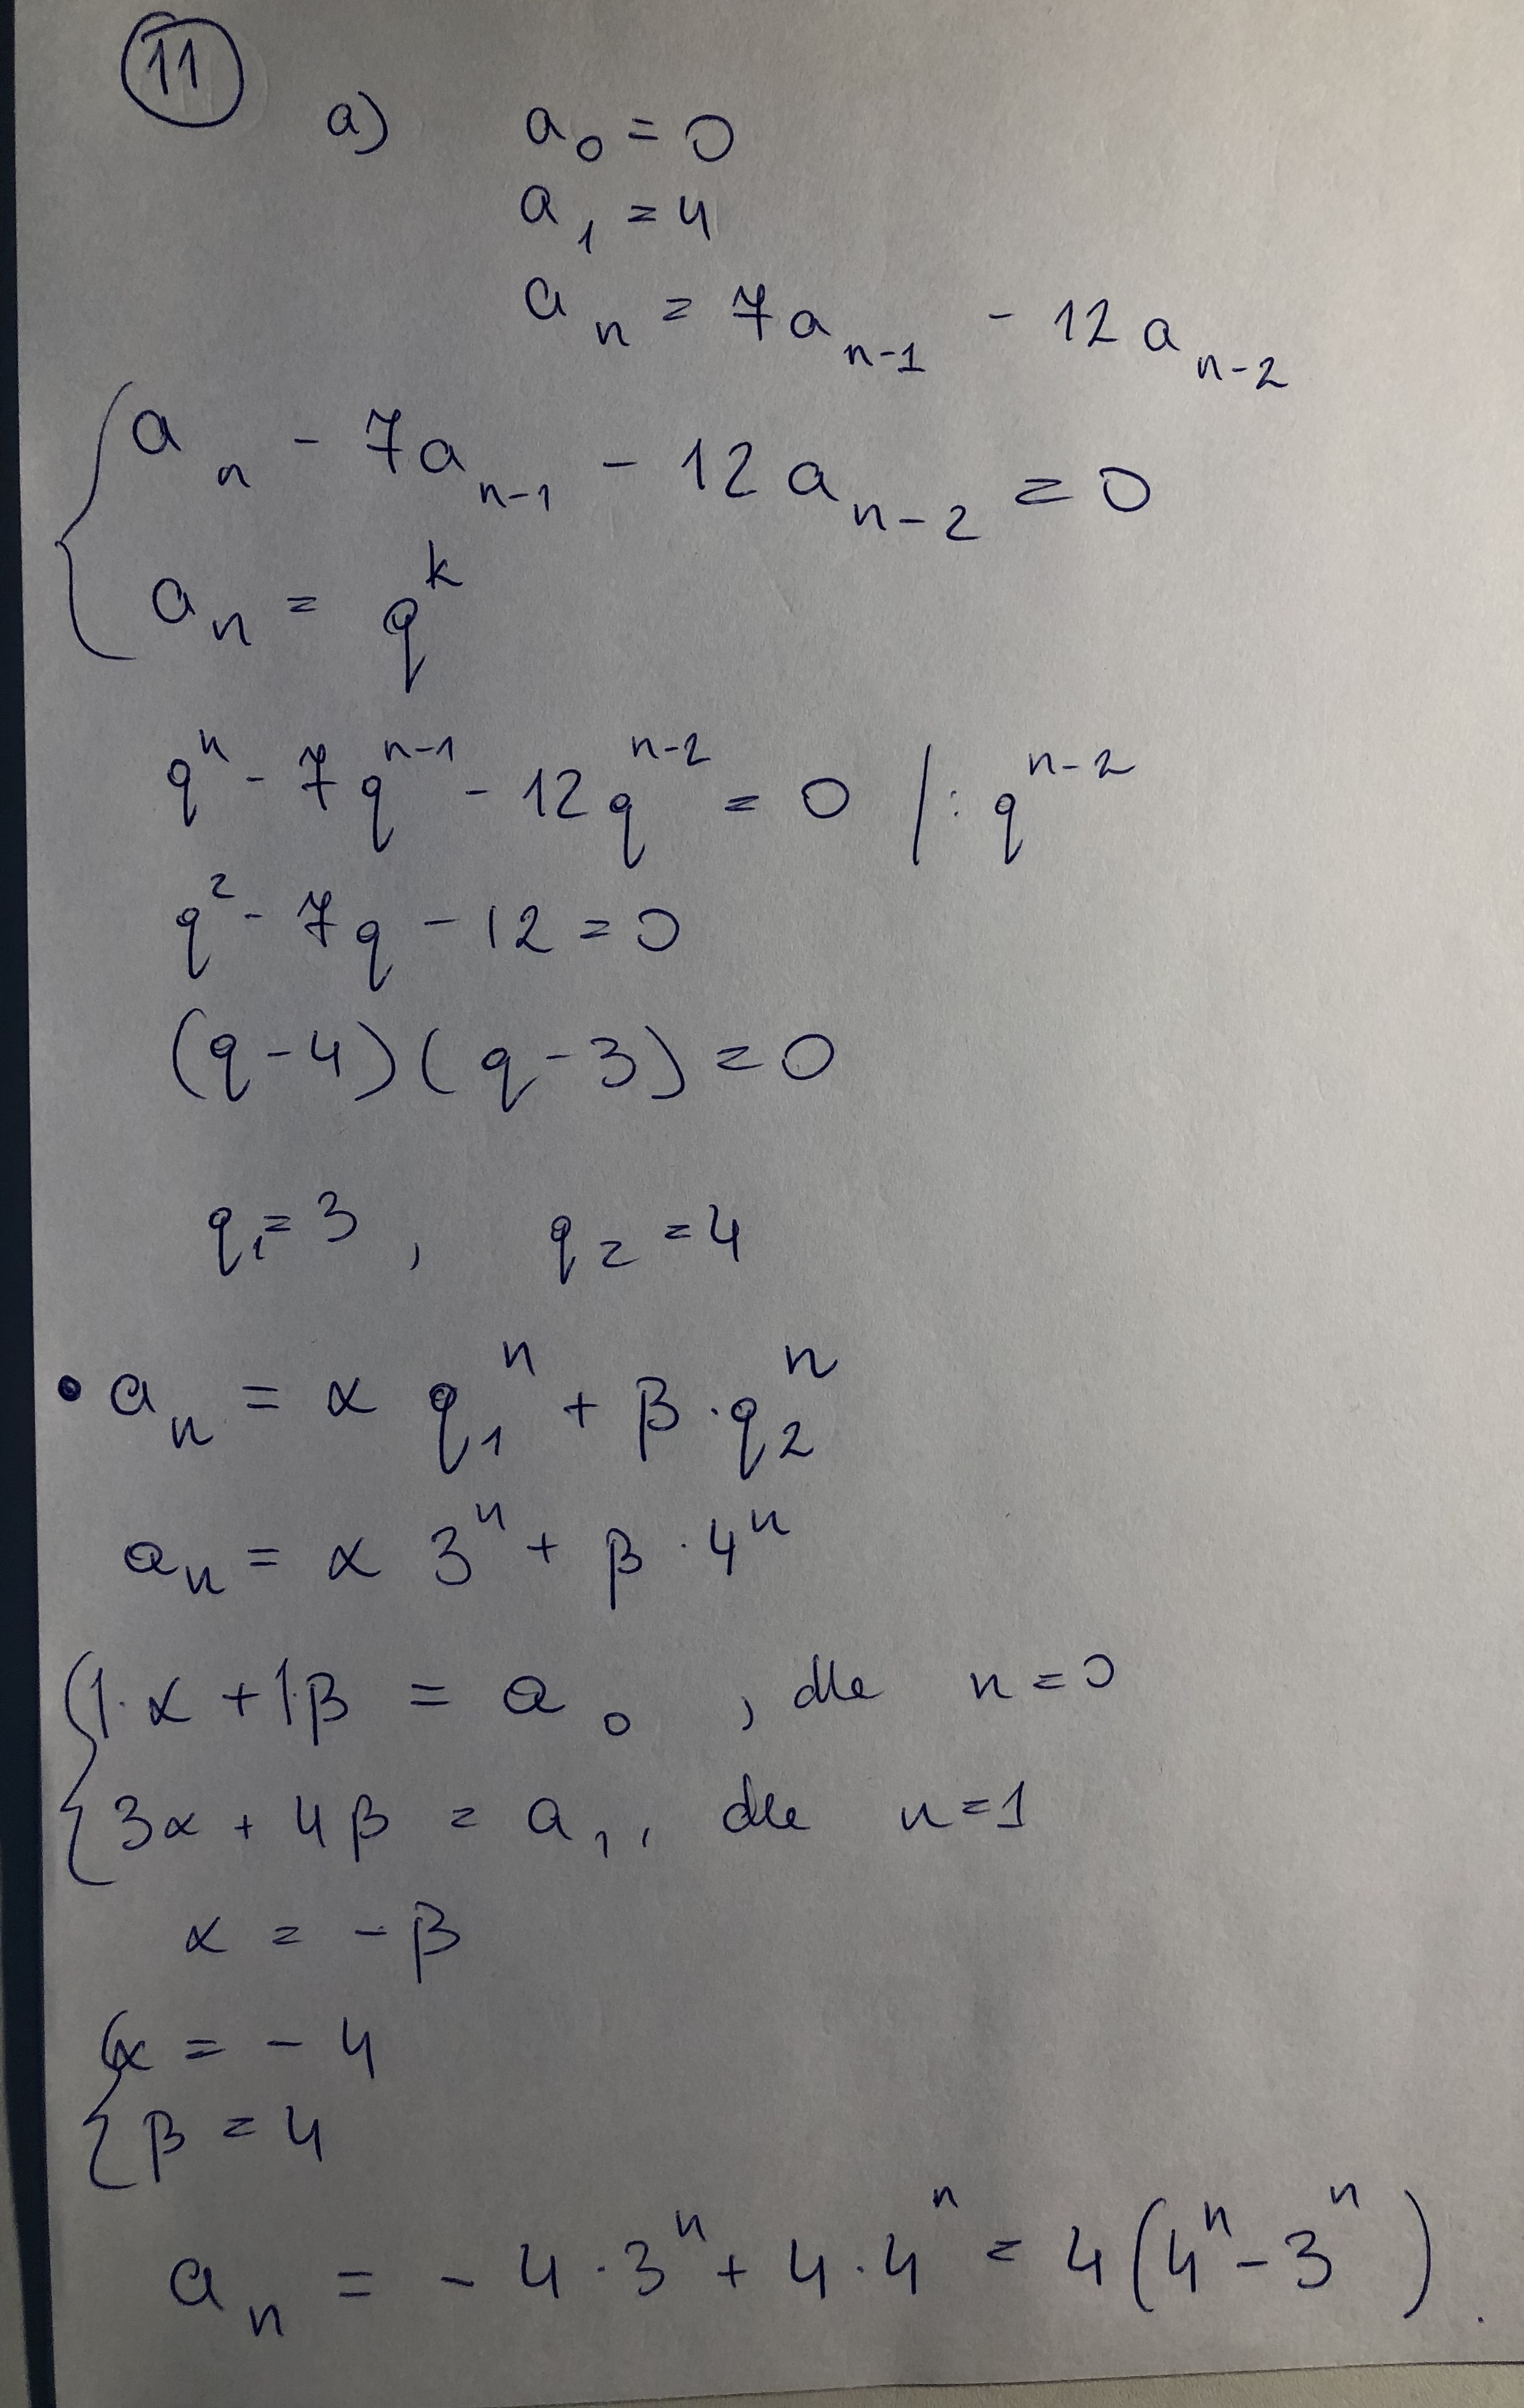 11
a) a₀ = 0
a₁ = 4
aₙ = 7aₙ₋₁ - 12aₙ₋₂
aₙ - 7aₙ₋₁ - 12aₙ₋₂ = 0
aₙ = qᵏ
qⁿ - 7qⁿ⁻¹ - 12qⁿ⁻² = 0 /: qⁿ⁻²
q² - 7q - 12 = 0
(q-4)(q-3) = 0
q₁ = 3, q₂ = 4
• aₙ = α q₁ⁿ + β · q₂ⁿ
aₙ = α 3ⁿ + β · 4ⁿ
1·α + 1·β = a₀, dla n = 0
3α + 4β = a₁, dla n = 1
α = -β
α = -4
β = 4
aₙ = -4·3ⁿ + 4·4ⁿ = 4(4ⁿ - 3ⁿ).